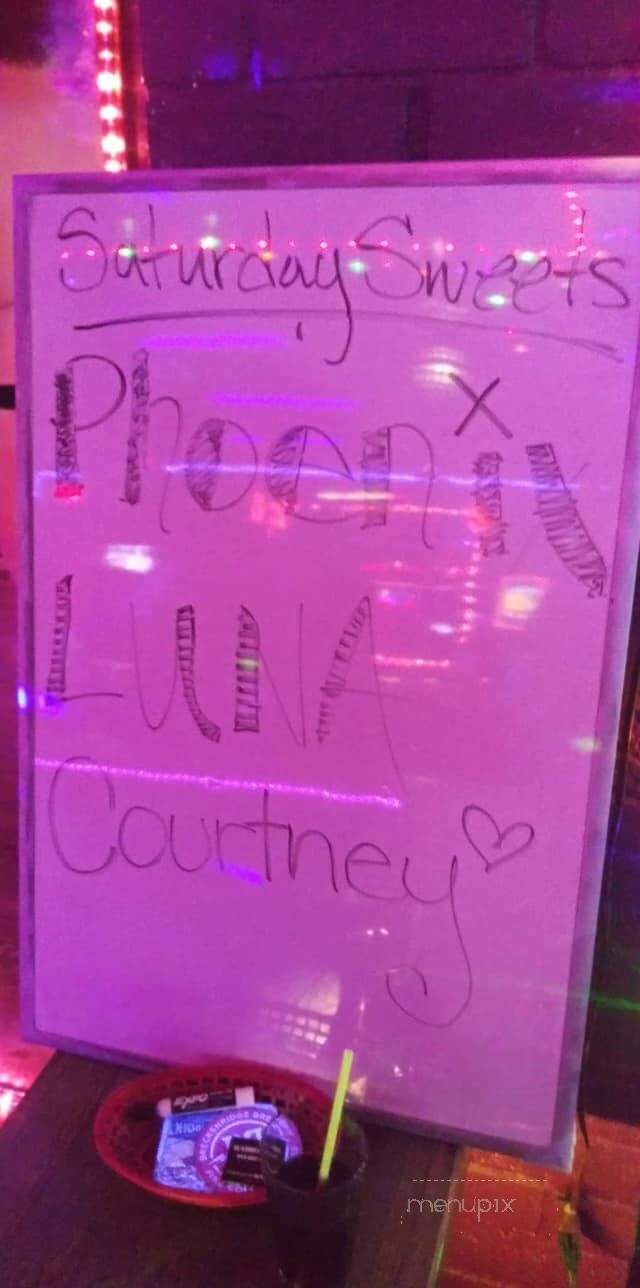 Saturday Sweets
Phoenix
LUNA
Courtney
expo
BRECKENRIDGE
menupix